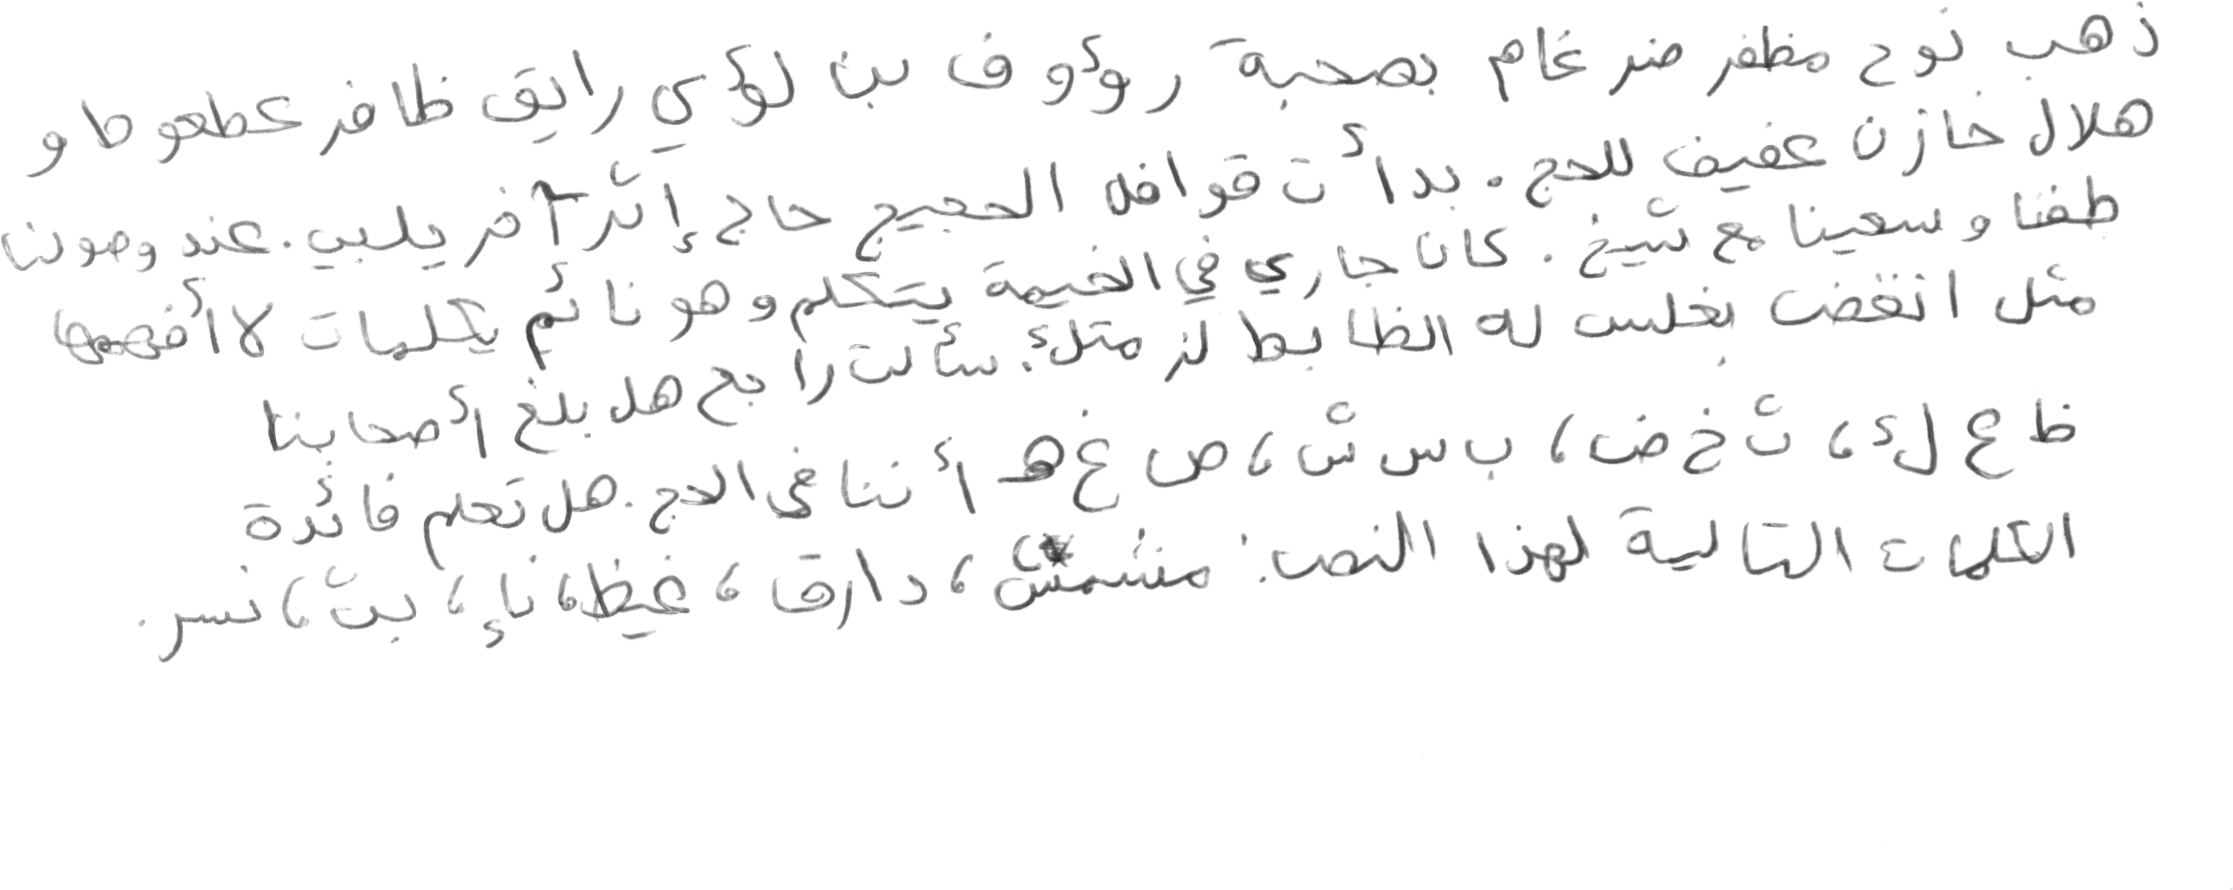 ذهب نوح مظفر ضرغام بصحبة رؤوف بن لؤي رايق ظافر عطعوط و
هلال خازن عفيف للحج. بدأت قوافل الحجيج حاج إثر آخر يلبي. عند وصولنا
طفنا وسعينا مع شيخ. كان جاري في الخيمة يتكلم وهو نائم بكلمات لا أفهمها
مثل انغض بغلس له الظابط لز متك. سألت رابح هل بلغ أصحابنا
ظ ع ك، ث خ ض، ب س ش، ص غ هـ أننا في الحج. هل تعلم فائدة
الكلمات التالية لهذا النص: مشمش، دارق، غيظ، نإ، بث، نسر.